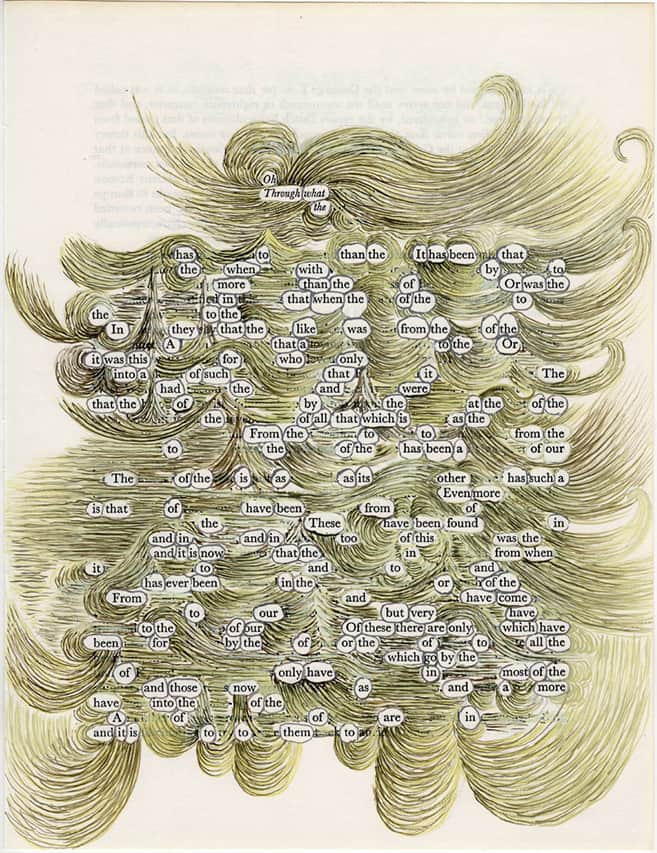 Oh
Through what
the
has to than the It has been that
the when with by to
more than the of Or was the
in the that when the of the to
the to the
In they that the like was from the of the
A that a to the Or
it was this for who only
into a of such that it The
had the and were
that the of by the at the of the
the of all that which is as the
From the to to from the
to the of the has been a of our
The of the is as as its other has such a
Even more
is that of have been from of
the These have been found in
and in and in too of this was the
and it is now that the in from when
it to and to and
has ever been in the or of the
From and have come
to our but very have
to the of our Of these there are only which have
been for by the of or the of to all the
which go by the
of only have in most of the
and those now as and a more
have into the of the
A of of are in
and it is to to them to